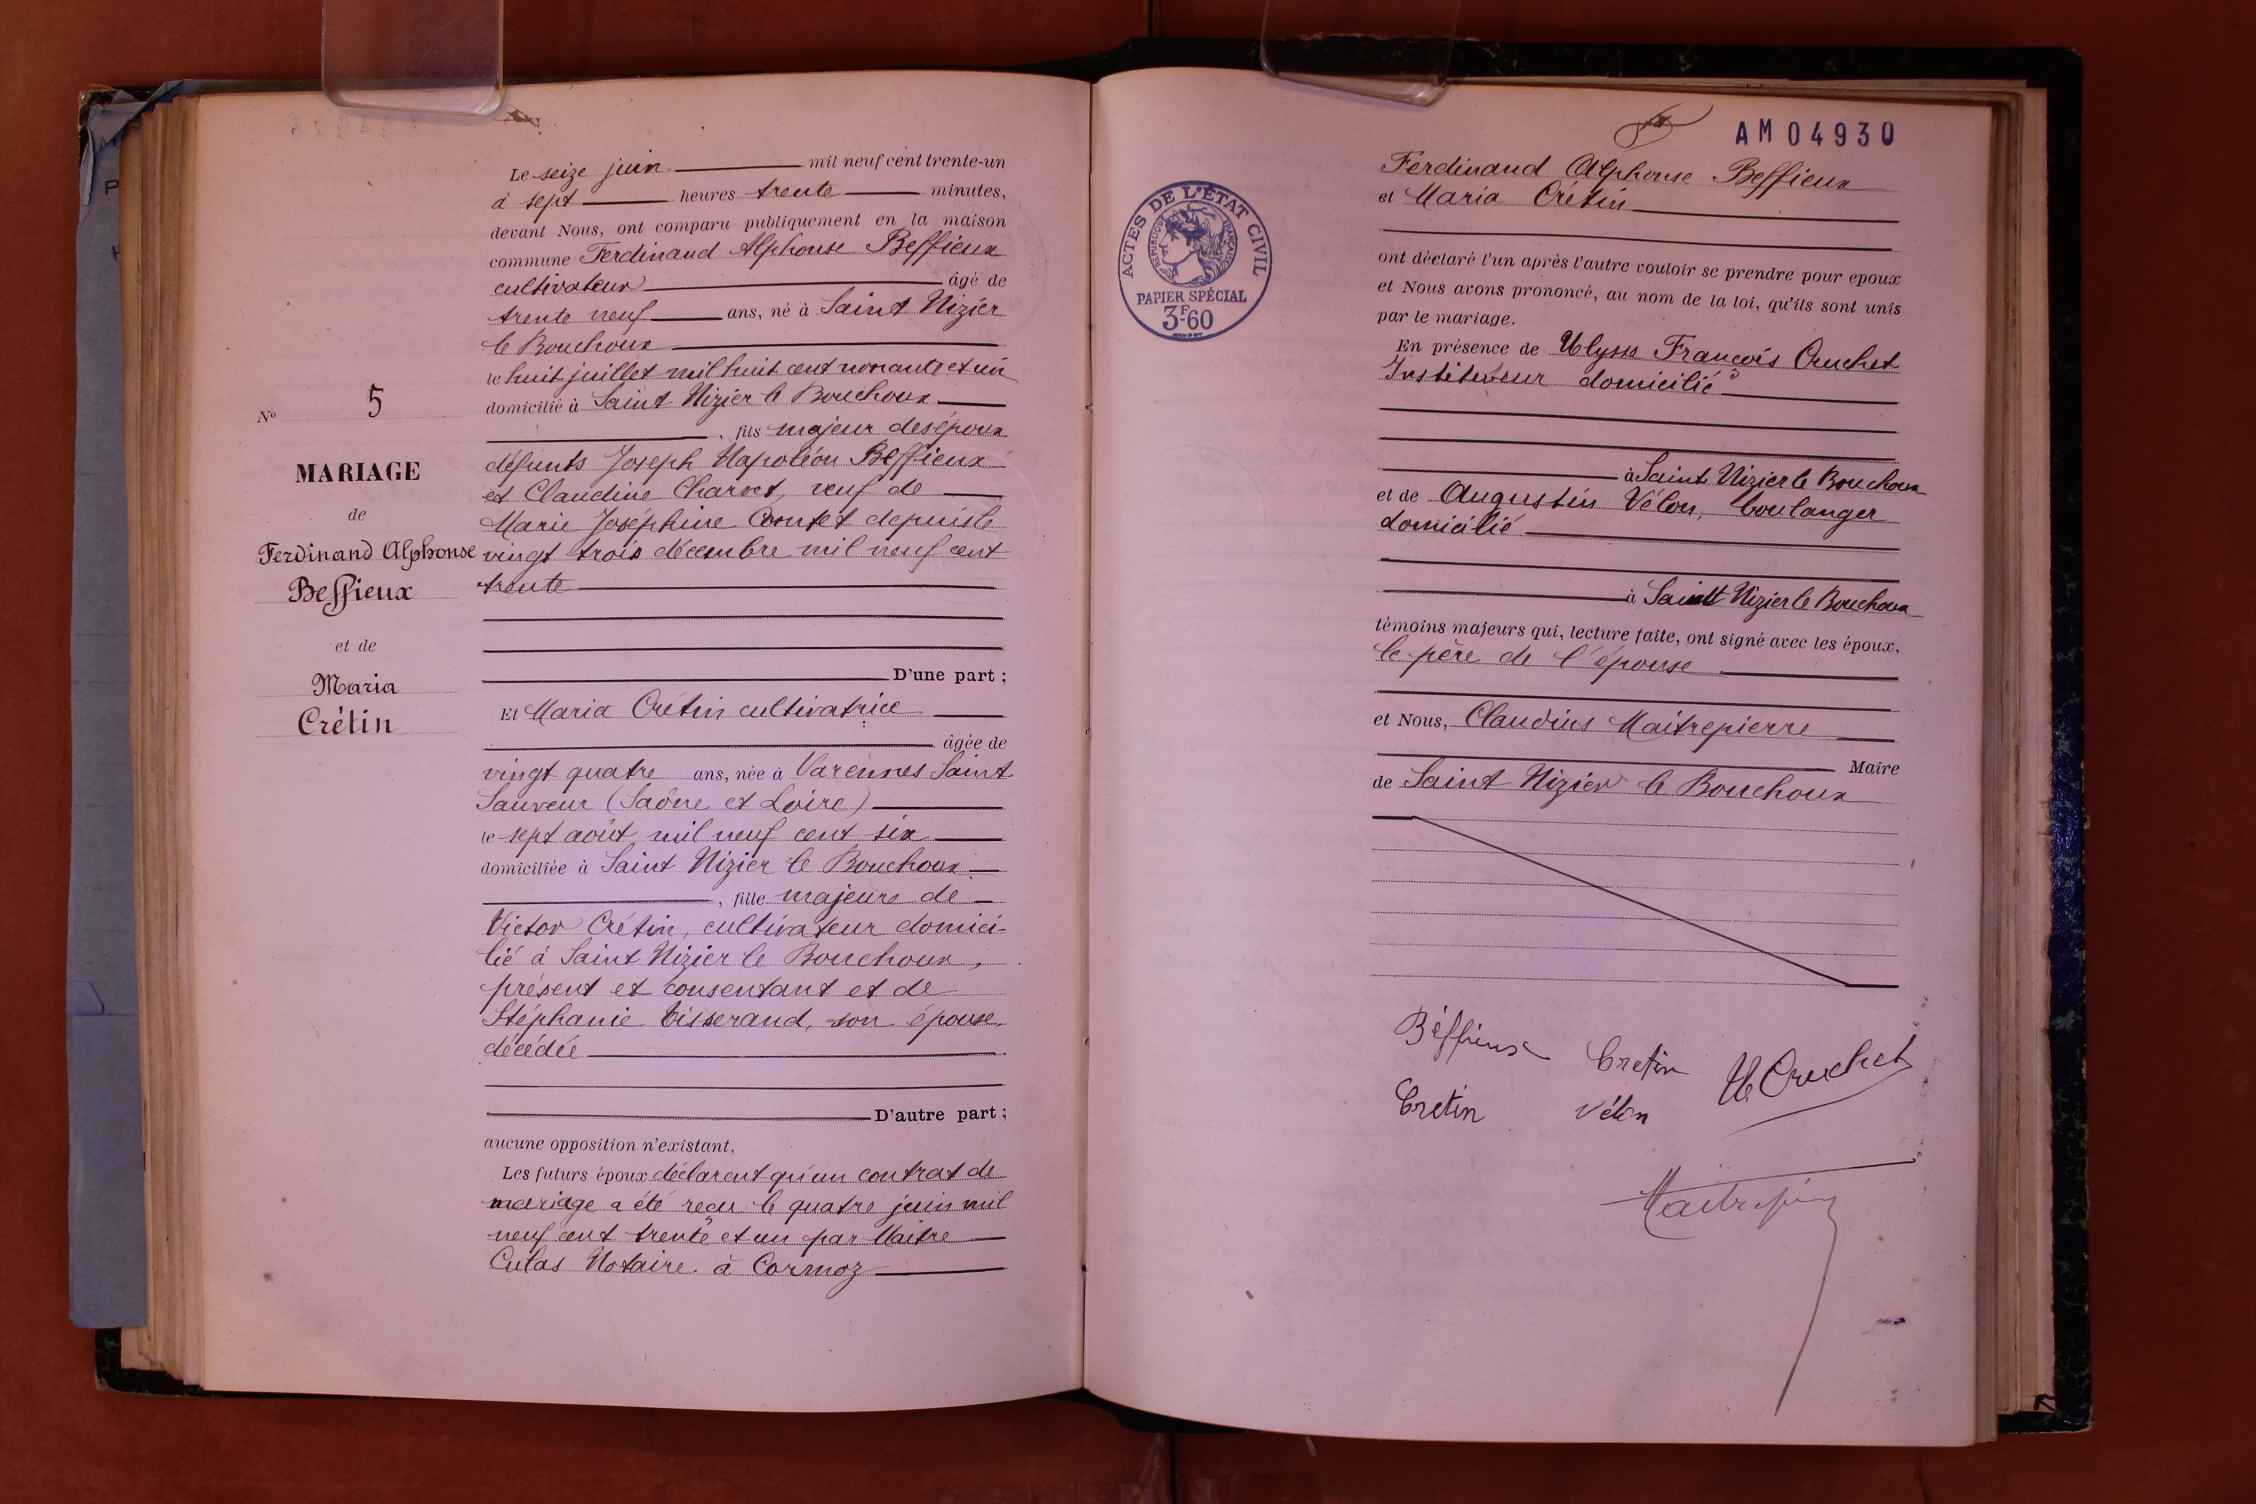 N° 5
MARIAGE
de
Ferdinand Alphonse
Beffieux
et de
Maria
Crétin
Le seize juin mil neuf cent trente-un
à sept heures trente minutes,
devant Nous, ont comparu publiquement en la maison
commune Ferdinand Alphonse Beffieux
cultivateur âgé de
trente neuf ans, né à Saint Nizier
le Bouchoux
le huit juillet mil huit cent nonante et un
domicilié à Saint Nizier le Bouchoux
, fils majeur des époux
défunts Joseph Napoléon Beffieux
et Claudine Charvet, veuf de
Marie Joséphine Comtet depuis le
vingt trois décembre mil neuf cent
trente
D'une part ;
Et Maria Crétin cultivatrice
âgée de
vingt quatre ans, née à Varennes Saint
Sauveur (Saône et Loire)
le sept août mil neuf cent six
domiciliée à Saint Nizier le Bouchoux
, fille majeure de
Victor Crétin, cultivateur domici-
lié à Saint Nizier le Bouchoux,
présent et consentant et de
Stéphanie Tisserand, son épouse,
décédée
D'autre part ;
aucune opposition n'existant,
Les futurs époux déclarent qu'un contrat de
mariage a été reçu le quatre juin mil
neuf cent trente et un par Maître
Culas Notaire à Cormoz
AM04930
ACTES DE L'ÉTAT CIVIL
RÉPUBLIQUE FRANÇAISE
PAPIER SPÉCIAL
3F.60
Ferdinand Alphonse Beffieux
et Maria Crétin
ont déclaré l'un après l'autre vouloir se prendre pour epoux
et Nous avons prononcé, au nom de la loi, qu'ils sont unis
par le mariage.
En présence de Ulysse François Cruchet
Instituteur domicilié
à Saint Nizier le Bouchoux
et de Augustin Vélon, boulanger
domicilié
à Saint Nizier le Bouchoux
témoins majeurs qui, lecture faite, ont signé avec les époux,
le père de l'épouse
et Nous, Claudius Maitrepierre
Maire
de Saint Nizier le Bouchoux
Béffieux Cretin U. Cruchet
Cretin Vélon